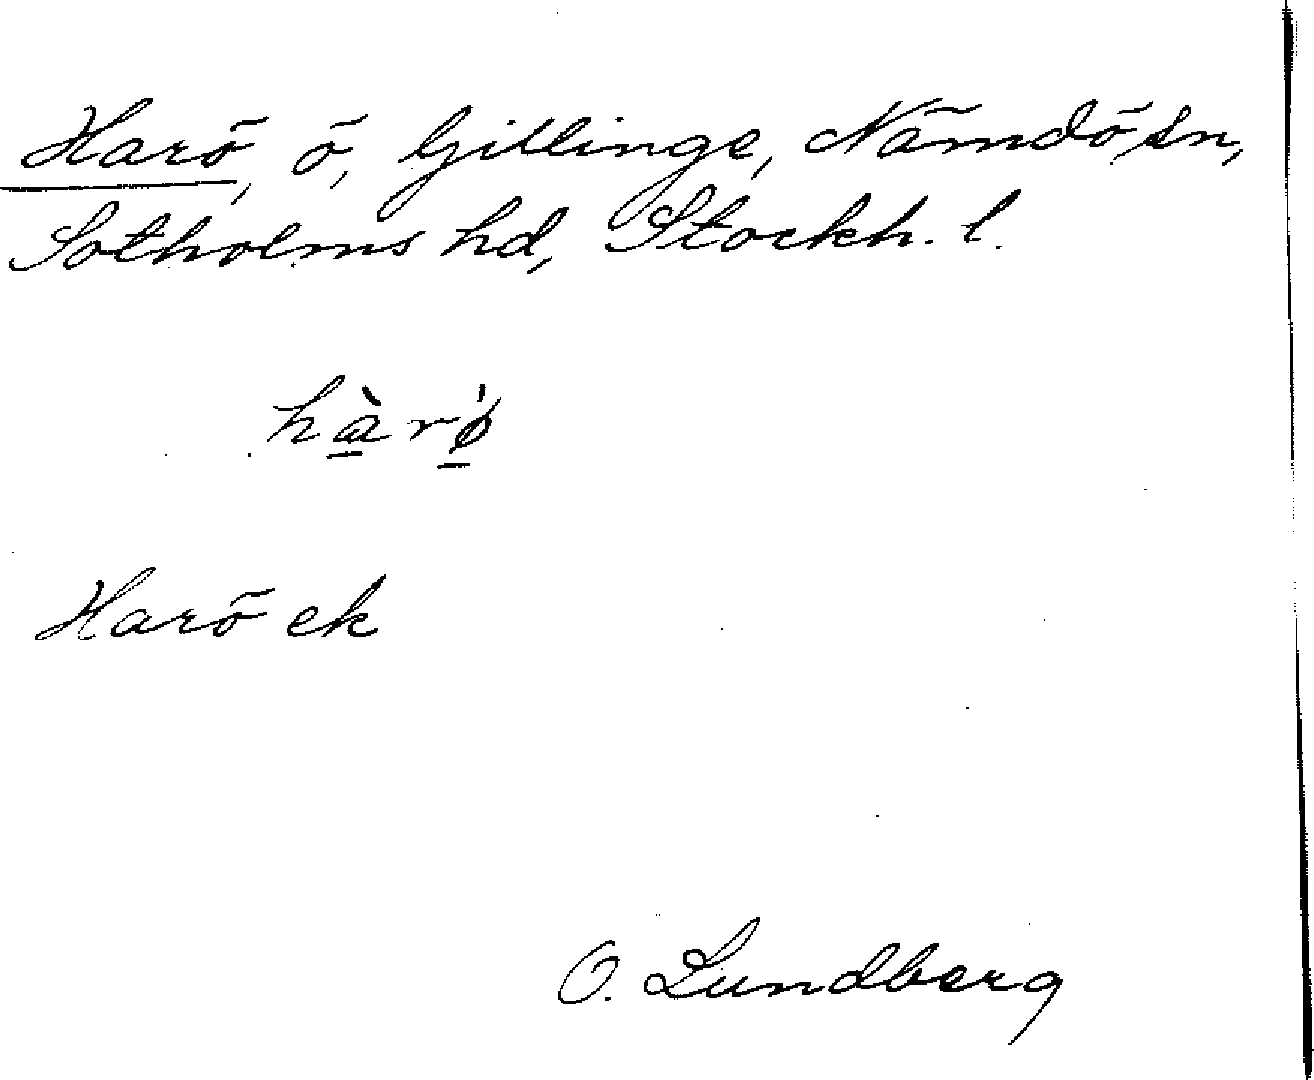 Harö, ö, Gillinge, Nämdö sn,
Sotholms hd, Stockh. l.
hàrø̀
Harö ek
O. Lundberg